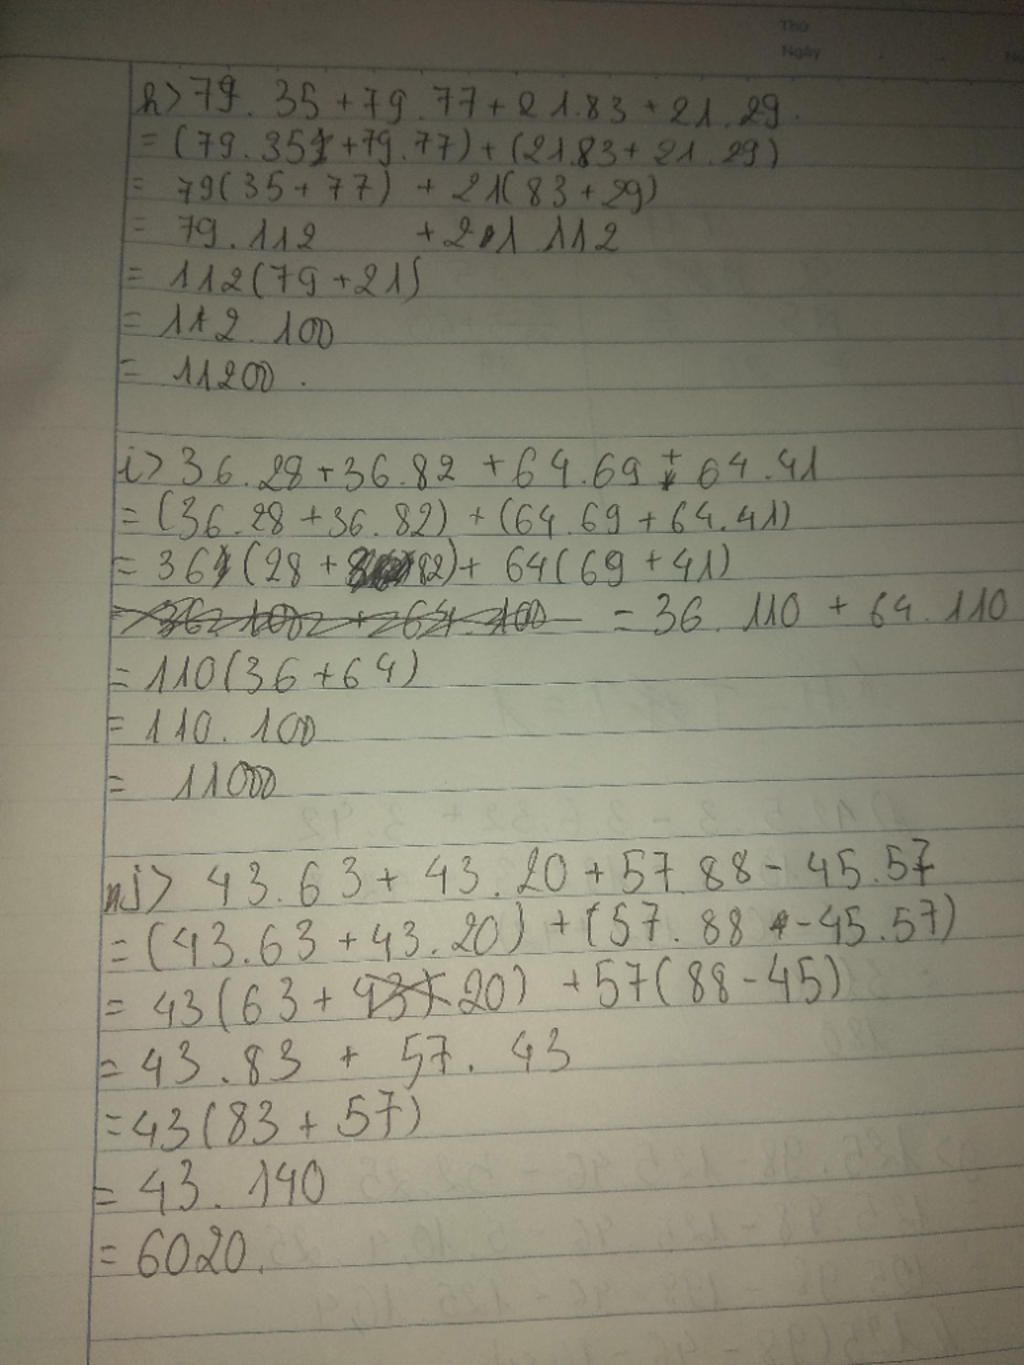 Thứ
Ngày
h> 79. 35 + 79.77 + 21.83 + 21.29.
= (79.35 + 79.77) + (21.83 + 21.29)
= 79(35 + 77) + 21(83 + 29)
= 79.112 + 21 112
= 112(79 + 21)
= 112. 100
= 11200.
i> 36.28 + 36.82 + 64.69 + 64.41
= (36.28 + 36.82) + (64.69 + 64.41)
= 36 (28 + 82) + 64(69 + 41)
= 36. 110 + 64.110
= 110(36 + 64)
= 110. 100
= 11000
j> 43.63 + 43.20 + 57.88 - 45.57
= (43.63 + 43.20) + (57.88 - 45.57)
= 43(63 + 20) + 57(88 - 45)
= 43.83 + 57. 43
= 43(83 + 57)
= 43. 140
= 6020.